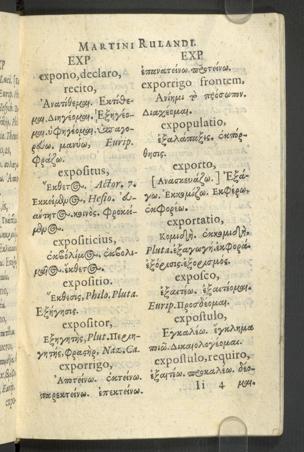 MARTINI RULANDI.
EXP
expono, declaro,
recito,
Ἀνατίθεμαι. Ἐκτίθε-
μαι. Διηγέομαι. [Ἐξηγέο-
μαι. ὑφηγέομαι. ὑπαγο-
ρεύω, μανύω, Eurip.
Φράζω.
expositus,
Ἔκθετος. Actor. 7.
Ἐκκείμενος. Hesio.
κοινὸς.
expositicius,
ἔκθετος.
expositio.
Ἔκθεσις, Philo, Pluta.
Ἐξήγησις.
expositor,
Ἐξηγητὴς, Plut. Περιη-
γητὴς, Φραστὴρ. Naz. Ca.
exporrigo,
Ἀποτείνω. ἐκτείνω.
παρεκτείνω. ἐπεκτείνω.
EXP
ἐπανατείνω. προτείνω.
exporrigo frontem,
Ἀνίημι τὸ πρόσωπον.
Διαχέομαι.
expopulatio,
ἐξαλάπαξις. ἐκπόρ-
θησις.
exporto,
[Ἀνασκευάζω.] Ἐξά-
γω. Ἐκκομίζω. Ἐκφέρω.
ἐκφορέω.
exportatio,
Κομιδὴ. ἐκκομιδὴ,
Pluta. ἐξαγωγὴ. ἐκφορὰ.
ἐξόρισις. ἐξορισμὸς.
exposco,
ἐξαιτέω. ἐξαιτέομαι.
Eurip. Προσδέομαι.
expostulo,
Ἐγκαλέω. ἔγκλημα
ποιῶ. Δικαιολογέομαι.
expostulo, requiro,
ἐξαιτέω. προκαλέω. δέο-
Ii 4 μαι.